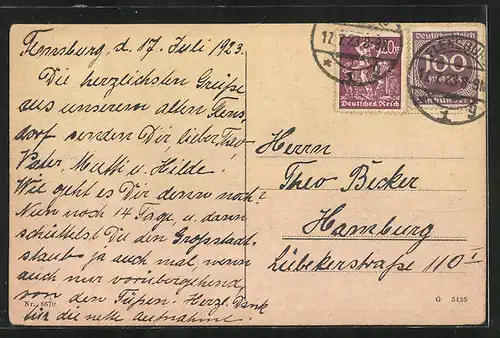 Flensburg, d. 17. Juli 1923.
Die herzlichsten Grüße
aus unserem alten Flens-
dorf senden Dir lieber Theo
Vater, Mutti u. Hilde!
Wie geht es Dir denn noch?
Nun noch 14 Tage, u. dann
schüttelst Du den Großstadt-
staub ja auch mal, wenn
auch nur vorübergehend,
von den Füßen. Herzl. Dank
für die nette Aufnahme!
Nr. 8670
20 M
Deutsches Reich
Deutsches Reich
100
Herrn
Theo Becker
Hamburg
Lübekerstraße 110 I
G 3425